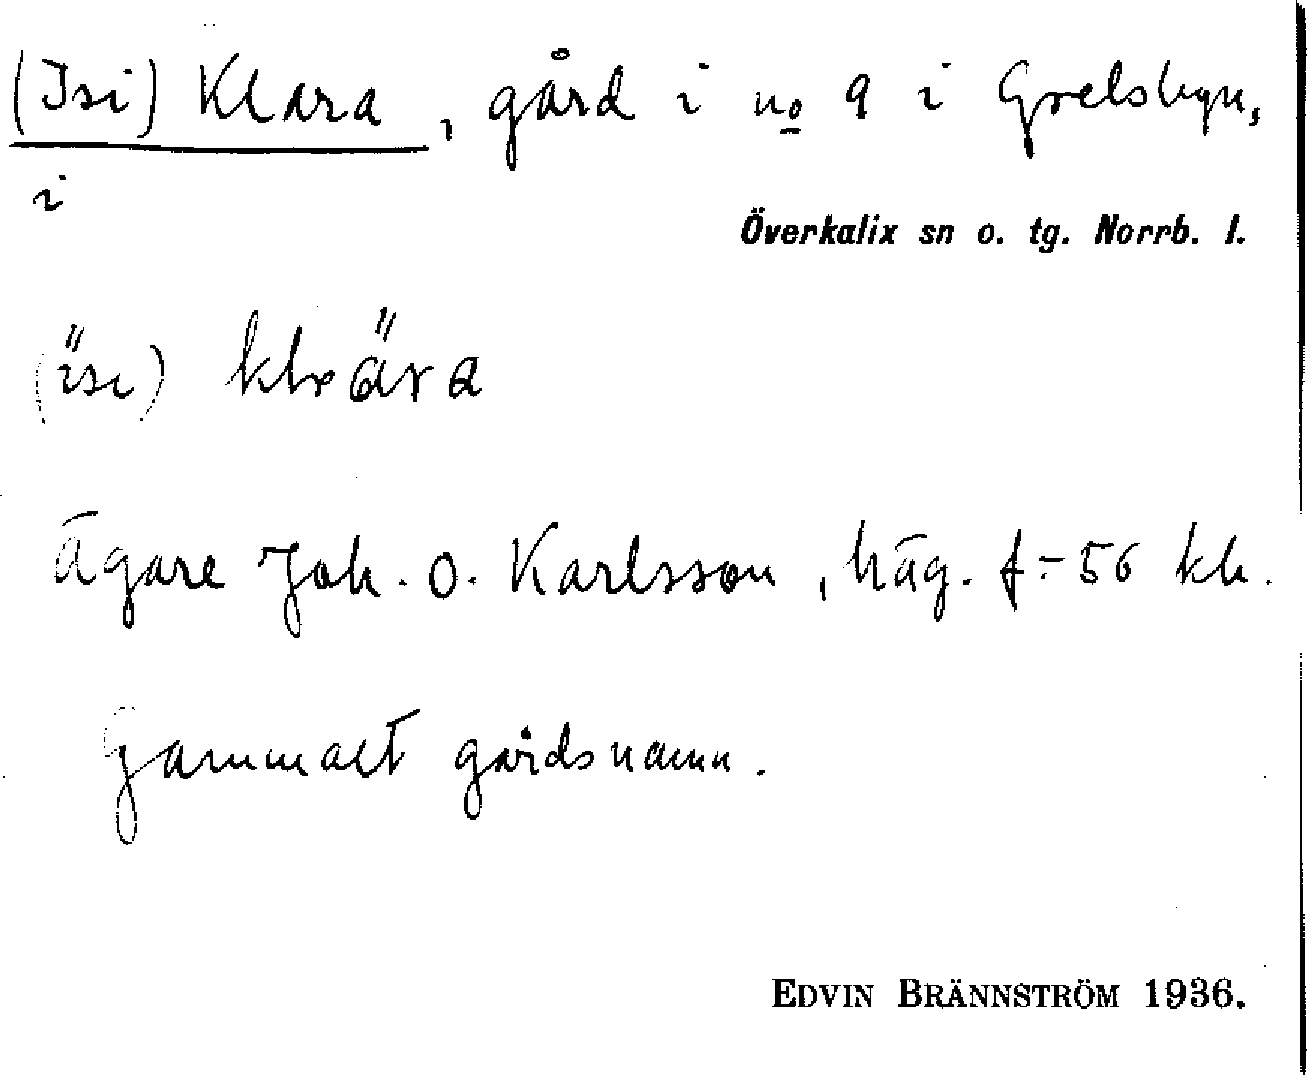 (Isi) Klara, gård i no 9 i Grelsbyn,
i
Överkalix sn o. tg. Norrb. l.
Ägare Joh. O. Karlsson, häg. f. -56 kh.
Gammalt gårdsnamn.
EDVIN BRÄNNSTRÖM 1936.